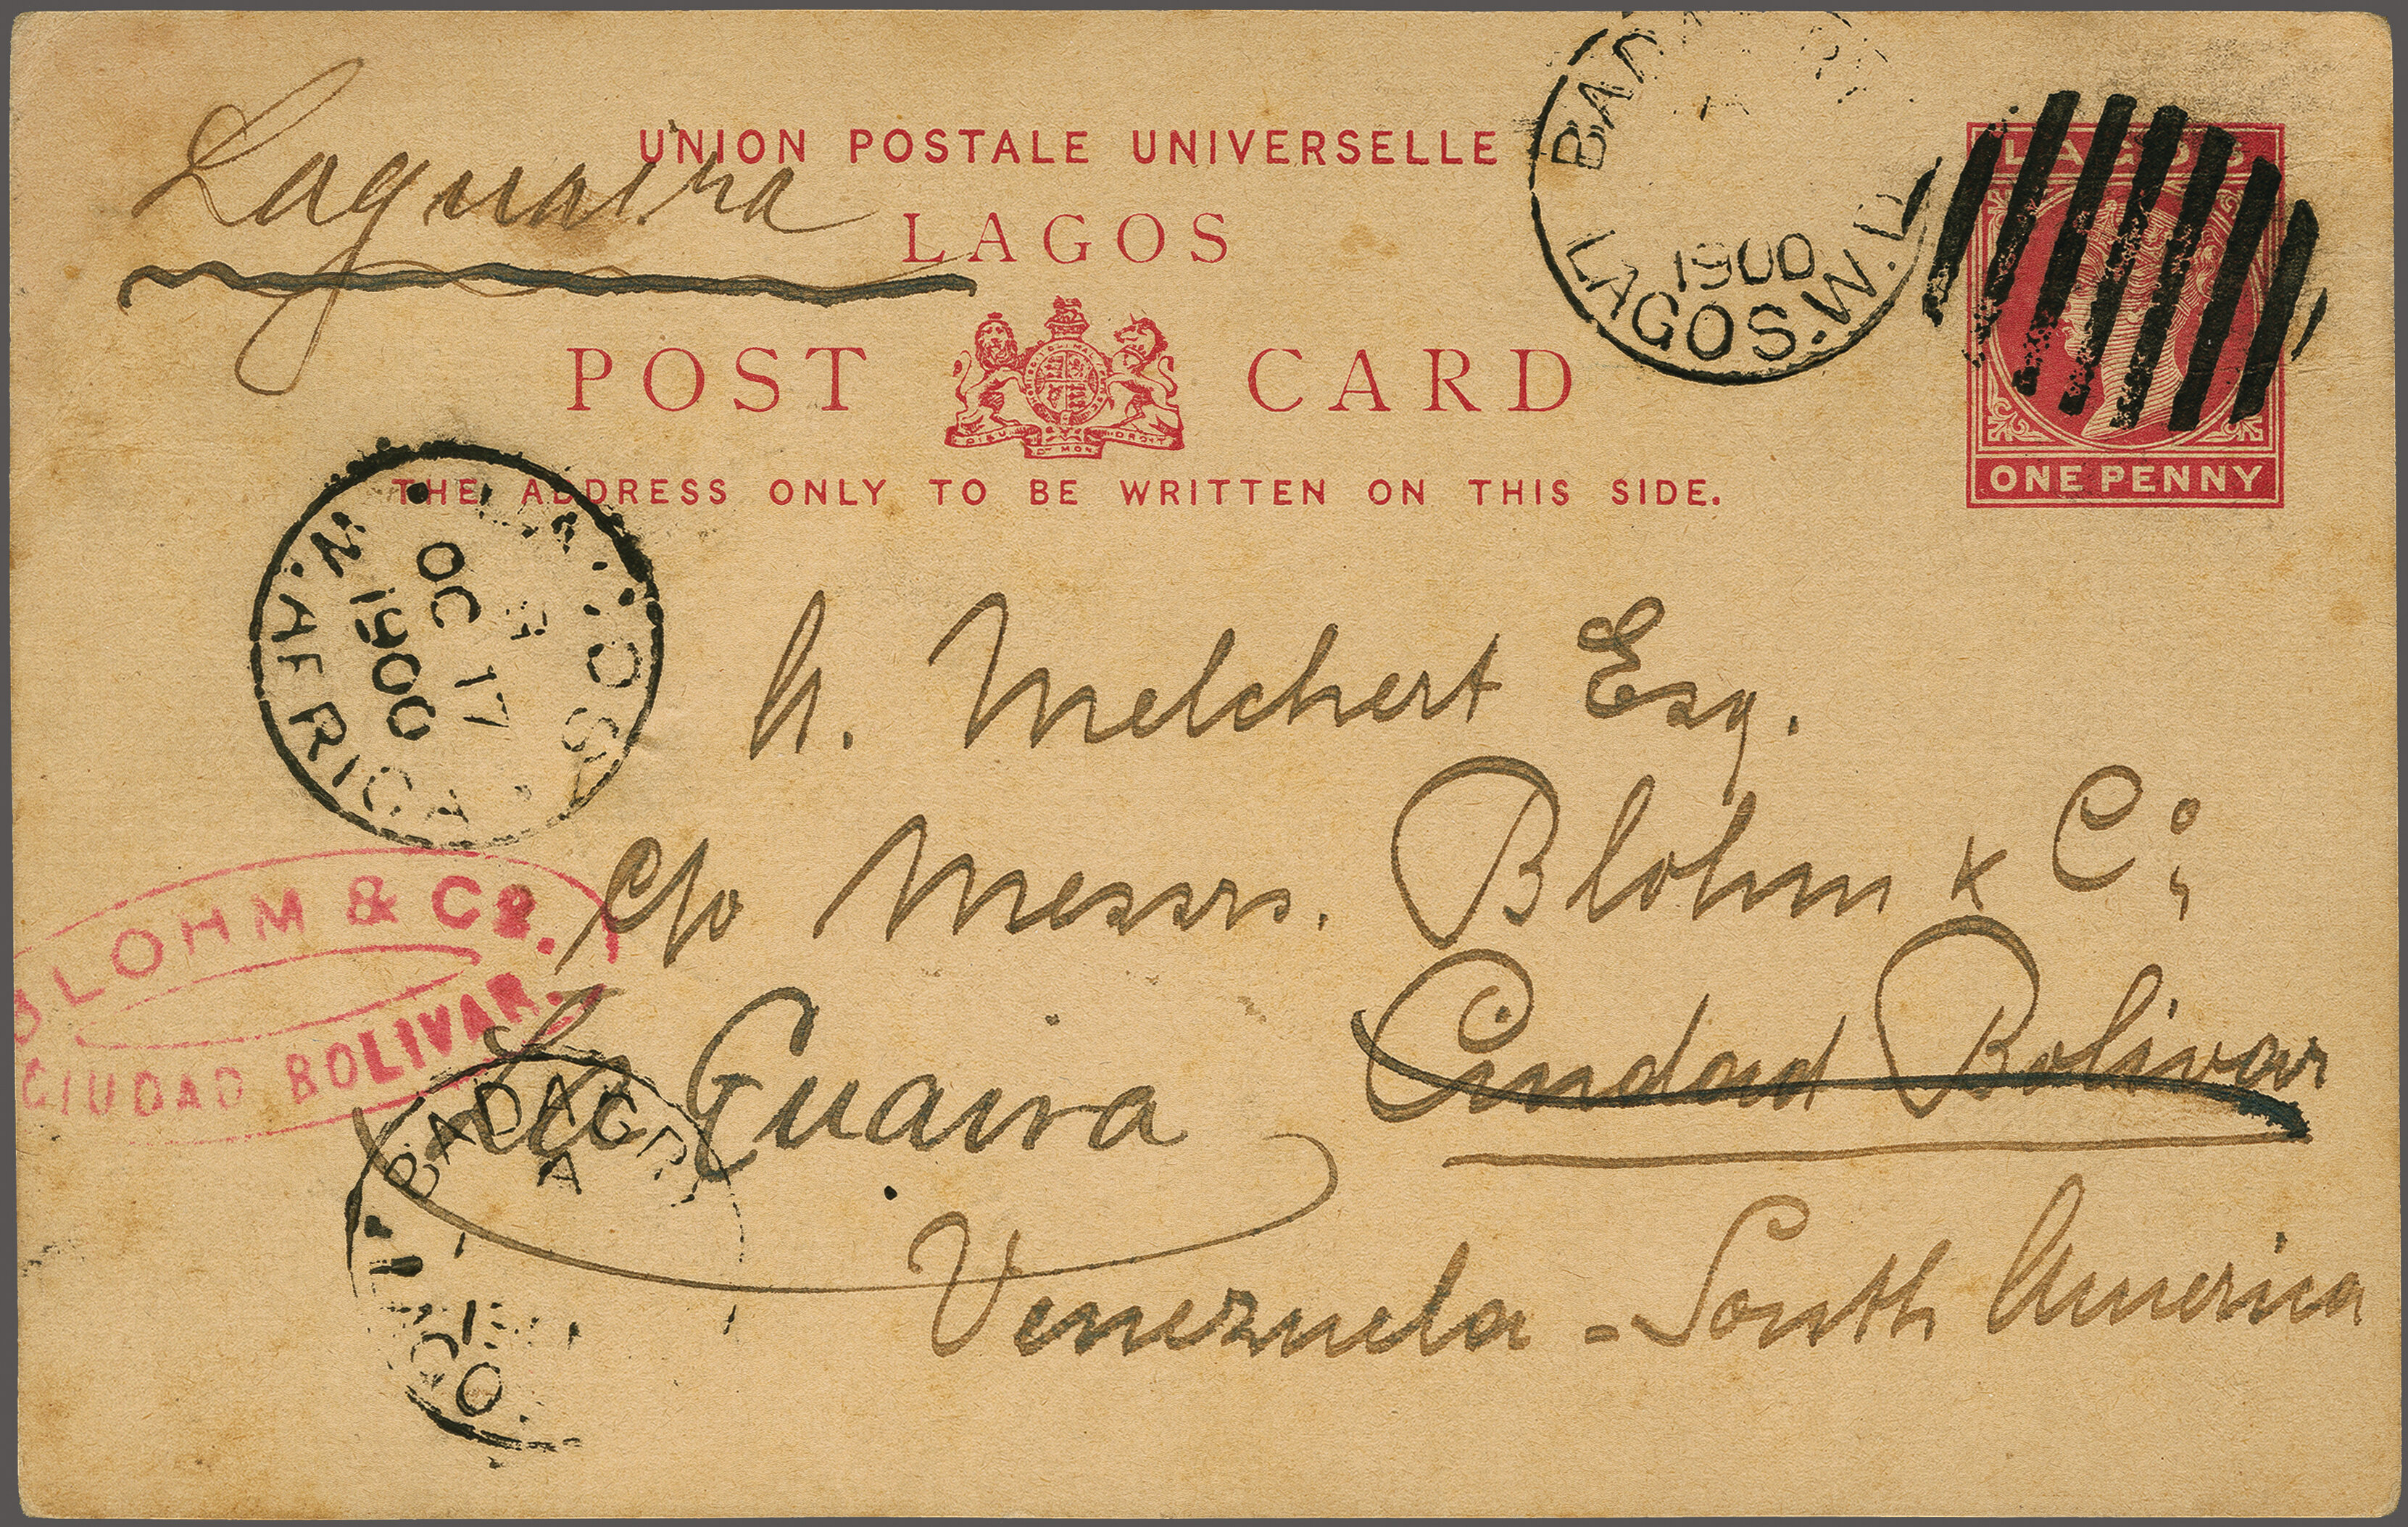 Laguaira
UNION POSTALE UNIVERSELLE
LAGOS
POST CARD
DIEU ET MON DROIT
THE ADDRESS ONLY TO BE WRITTEN ON THIS SIDE.
LAGOS
ONE PENNY
1900
LAGOS.W.
LAGOS
OC 17
1900
W. AFRICA
A. Melchert Esq.
c/o Messrs. Blohm & Co,
Ciudad Bolivar
La Guaira
Venezuela - South America
BLOHM & CO.
CIUDAD BOLIVAR.
BADAGRY
A